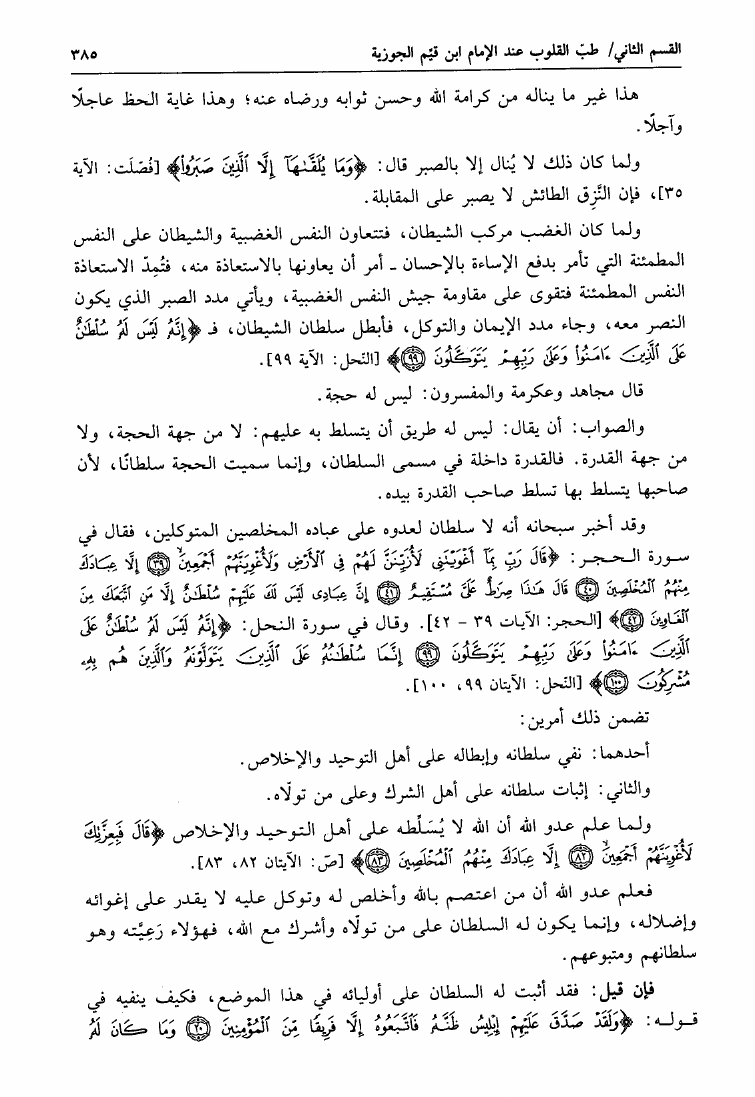 القسم الثاني/ طبّ القلوب عند الإمام ابن قيّم الجوزية ٣٨٥
هذا غير ما يناله من كرامة الله وحسن ثوابه ورضاه عنه؛ وهذا غاية الحظ عاجلًا
وآجلًا.
ولما كان ذلك لا يُنال إلا بالصبر قال: ﴿وَمَا يُلَقَّىٰهَآ إِلَّا ٱلَّذِينَ صَبَرُوا۟﴾ [فُصّلَت: الآية
٣٥]، فإن النَّزِق الطائش لا يصبر على المقابلة.
ولما كان الغضب مركب الشيطان، فتتعاون النفس الغضبية والشيطان على النفس
المطمئنة التي تأمر بدفع الإساءة بالإحسان ـ أمر أن يعاونها بالاستعاذة منه، فتُمِدّ الاستعاذة
النفس المطمئنة فتقوى على مقاومة جيش النفس الغضبية، ويأتي مدد الصبر الذي يكون
النصر معه، وجاء مدد الإيمان والتوكل، فأبطل سلطان الشيطان، فـ ﴿إِنَّهُۥ لَيْسَ لَهُۥ سُلْطَٰنٌ
عَلَى ٱلَّذِينَ ءَامَنُوا۟ وَعَلَىٰ رَبِّهِمْ يَتَوَكَّلُونَ ﴿٩٩﴾﴾ [النّحل: الآية ٩٩].
قال مجاهد وعكرمة والمفسرون: ليس له حجة.
والصواب: أن يقال: ليس له طريق أن يتسلط به عليهم: لا من جهة الحجة، ولا
من جهة القدرة. فالقدرة داخلة في مسمى السلطان، وإنما سميت الحجة سلطانًا، لأن
صاحبها يتسلط بها تسلط صاحب القدرة بيده.
وقد أخبر سبحانه أنه لا سلطان لعدوه على عباده المخلصين المتوكلين، فقال في
سورة الحجر: ﴿قَالَ رَبِّ بِمَآ أَغْوَيْتَنِى لَأُزَيِّنَنَّ لَهُمْ فِى ٱلْأَرْضِ وَلَأُغْوِيَنَّهُمْ أَجْمَعِينَ ﴿٣٩﴾ إِلَّا عِبَادَكَ
مِنْهُمُ ٱلْمُخْلَصِينَ ﴿٤٠﴾ قَالَ هَٰذَا صِرَٰطٌ عَلَىَّ مُسْتَقِيمٌ ﴿٤١﴾ إِنَّ عِبَادِى لَيْسَ لَكَ عَلَيْهِمْ سُلْطَٰنٌ إِلَّا مَنِ ٱتَّبَعَكَ مِنَ
ٱلْغَاوِينَ ﴿٤٢﴾﴾ [الحجر: الآيات ٣٩ - ٤٢]. وقال في سورة النحل: ﴿إِنَّهُۥ لَيْسَ لَهُۥ سُلْطَٰنٌ عَلَى
ٱلَّذِينَ ءَامَنُوا۟ وَعَلَىٰ رَبِّهِمْ يَتَوَكَّلُونَ ﴿٩٩﴾ إِنَّمَا سُلْطَٰنُهُۥ عَلَى ٱلَّذِينَ يَتَوَلَّوْنَهُۥ وَٱلَّذِينَ هُم بِهِۦ
مُشْرِكُونَ ﴿١٠٠﴾﴾ [النّحل: الآيتان ٩٩، ١٠٠].
تضمن ذلك أمرين:
أحدهما: نفي سلطانه وإبطاله على أهل التوحيد والإخلاص.
والثاني: إثبات سلطانه على أهل الشرك وعلى من تولّاه.
ولما علم عدو الله أن الله لا يُسَلِّطه على أهل التوحيد والإخلاص ﴿قَالَ فَبِعِزَّتِكَ
لَأُغْوِيَنَّهُمْ أَجْمَعِينَ ﴿٨٢﴾ إِلَّا عِبَادَكَ مِنْهُمُ ٱلْمُخْلَصِينَ ﴿٨٣﴾﴾ [صّ: الآيتان ٨٢، ٨٣].
فعلم عدو الله أن من اعتصم بالله وأخلص له وتوكل عليه لا يقدر على إغوائه
وإضلاله، وإنما يكون له السلطان على من تولّاه وأشرك مع الله، فهؤلاء رَعِيَّته وهو
سلطانهم ومتبوعهم.
فإن قيل: فقد أثبت له السلطان على أوليائه في هذا الموضع، فكيف ينفيه في
قوله: ﴿وَلَقَدْ صَدَّقَ عَلَيْهِمْ إِبْلِيسُ ظَنَّهُۥ فَٱتَّبَعُوهُ إِلَّا فَرِيقًا مِّنَ ٱلْمُؤْمِنِينَ ﴿٢٠﴾ وَمَا كَانَ لَهُۥ